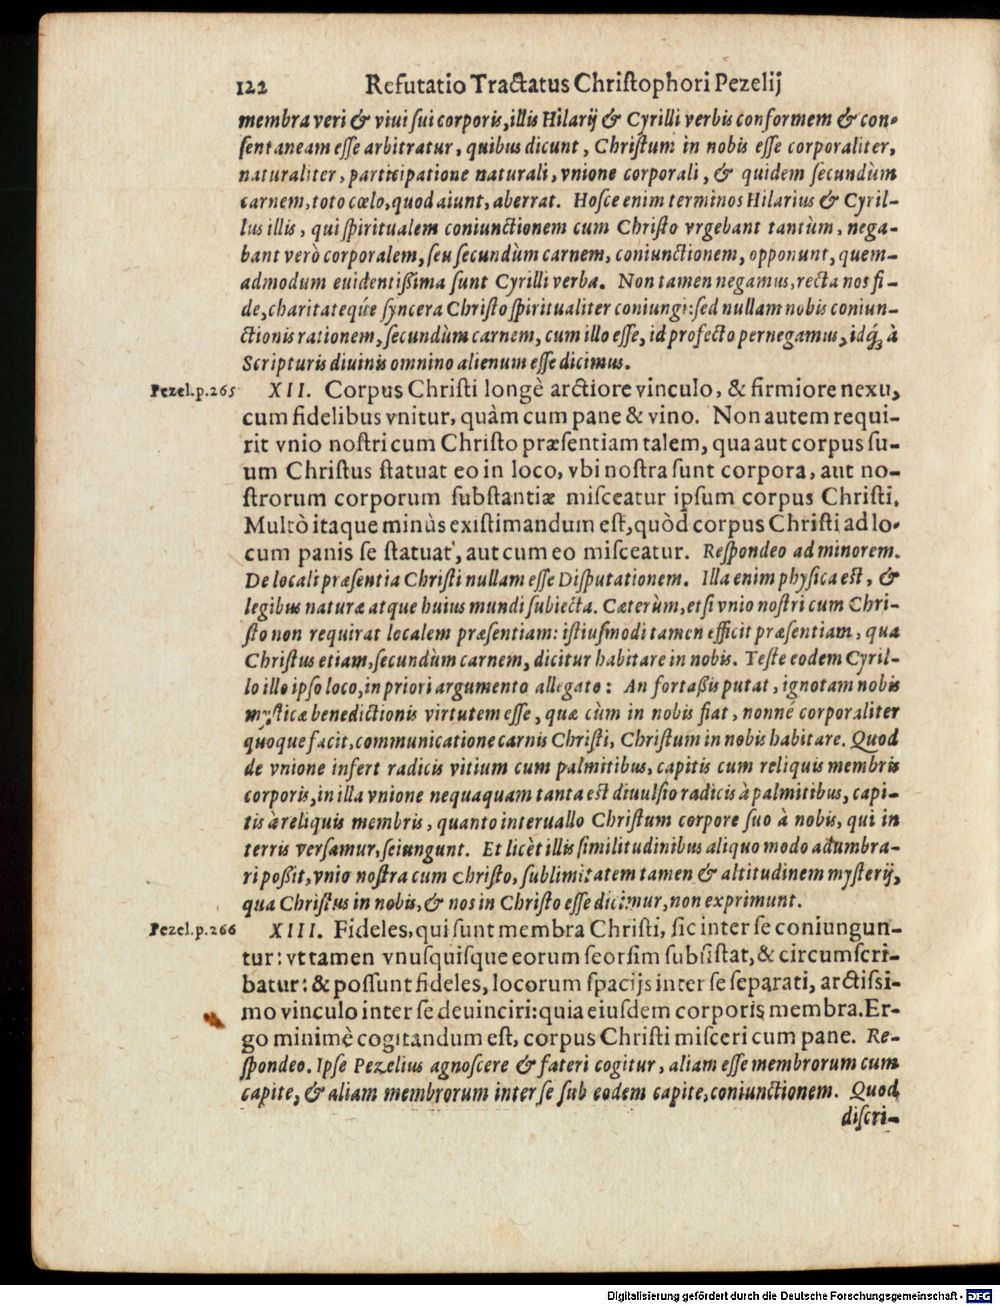 122 Refutatio Tractatus Chriſtophori Pezelij
membra veri & viui ſui corporis, illis Hilarij & Cyrilli verbis conformem & con-
ſentaneam eſſe arbitratur, quibus dicunt, Chriſtum in nobis eſſe corporaliter,
naturaliter, participatione naturali, vnione corporali, & quidem ſecundùm
carnem, toto cœlo, quod aiunt, aberrat. Hoſce enim terminos Hilarius & Cyril-
lus illis, qui ſpiritualem coniunctionem cum Chriſto vrgebant tantùm, nega-
bant verò corporalem, ſeu ſecundùm carnem, coniunctionem, opponunt, quem-
admodum euidentißima ſunt Cyrilli verba. Non tamen negamus, recta nos fi-
de, charitateq́ue ſyncera Chriſto ſpiritualiter coniungi: ſed nullam nobis coniun-
ctionis rationem, ſecundùm carnem, cum illo eſſe, id profecto pernegamus, idq́; à
Scripturis diuinis omnino alienum eſſe dicimus.
Pezel. p. 265 XII. Corpus Chriſti longè arctiore vinculo, & firmiore nexu,
cum fidelibus vnitur, quàm cum pane & vino. Non autem requi-
rit vnio noſtri cum Chriſto præſentiam talem, qua aut corpus ſu-
um Chriſtus ſtatuat eo in loco, vbi noſtra ſunt corpora, aut no-
ſtrorum corporum ſubſtantiæ miſceatur ipſum corpus Chriſti.
Multò itaque minùs exiſtimandum eſt, quòd corpus Chriſti ad lo-
cum panis ſe ſtatuat, aut cum eo miſceatur. Reſpondeo ad minorem.
De locali præſentia Chriſti nullam eſſe Diſputationem. Illa enim phyſica eſt, &
legibus naturæ atque huius mundi ſubiecta. Cæterùm, etſi vnio noſtri cum Chri-
ſto non requirat localem præſentiam: iſtiuſmodi tamen efficit præſentiam, qua
Chriſtus etiam, ſecundùm carnem, dicitur habitare in nobis. Teſte eodem Cyril-
lo illo ipſo loco, in priori argumento allegato: An fortaßis putat, ignotam nobis
myſticæ benedictionis virtutem eſſe, quæ cùm in nobis fiat, nonné corporaliter
quoque facit, communicatione carnis Chriſti, Chriſtum in nobis habitare. Quod
de vnione infert radicis vitium cum palmitibus, capitis cum reliquis membris
corporis, in illa vnione nequaquam tanta eſt diuulſio radicis à palmitibus, capi-
tis à reliquis membris, quanto interuallo Chriſtum corpore ſuo à nobis, qui in
terris verſamur, ſeiungunt. Et licèt illis ſimilitudinibus aliquo modo adumbra-
ri poßit, vnio noſtra cum Chriſto, ſublimitatem tamen & altitudinem myſterij,
qua Chriſtus in nobis, & nos in Chriſto eſſe dicimur, non exprimunt.
Pezel. p. 266 XIII. Fideles, qui ſunt membra Chriſti, ſic inter ſe coniungun-
tur: vt tamen vnuſquiſque eorum ſeorſim ſubſiſtat, & circumſcri-
batur: & poſſunt fideles, locorum ſpacijs inter ſe ſeparati, arctiſsi-
mo vinculo inter ſe deuinciri: quia eiuſdem corporis membra. Er-
go minimè cogitandum eſt, corpus Chriſti miſceri cum pane. Re-
ſpondeo. Ipſe Pezelius agnoſcere & fateri cogitur, aliam eſſe membrorum cum
capite, & aliam membrorum inter ſe ſub eodem capite, coniunctionem. Quod
diſcri-
Digitalisierung gefördert durch die Deutsche Forschungsgemeinschaft - DFG